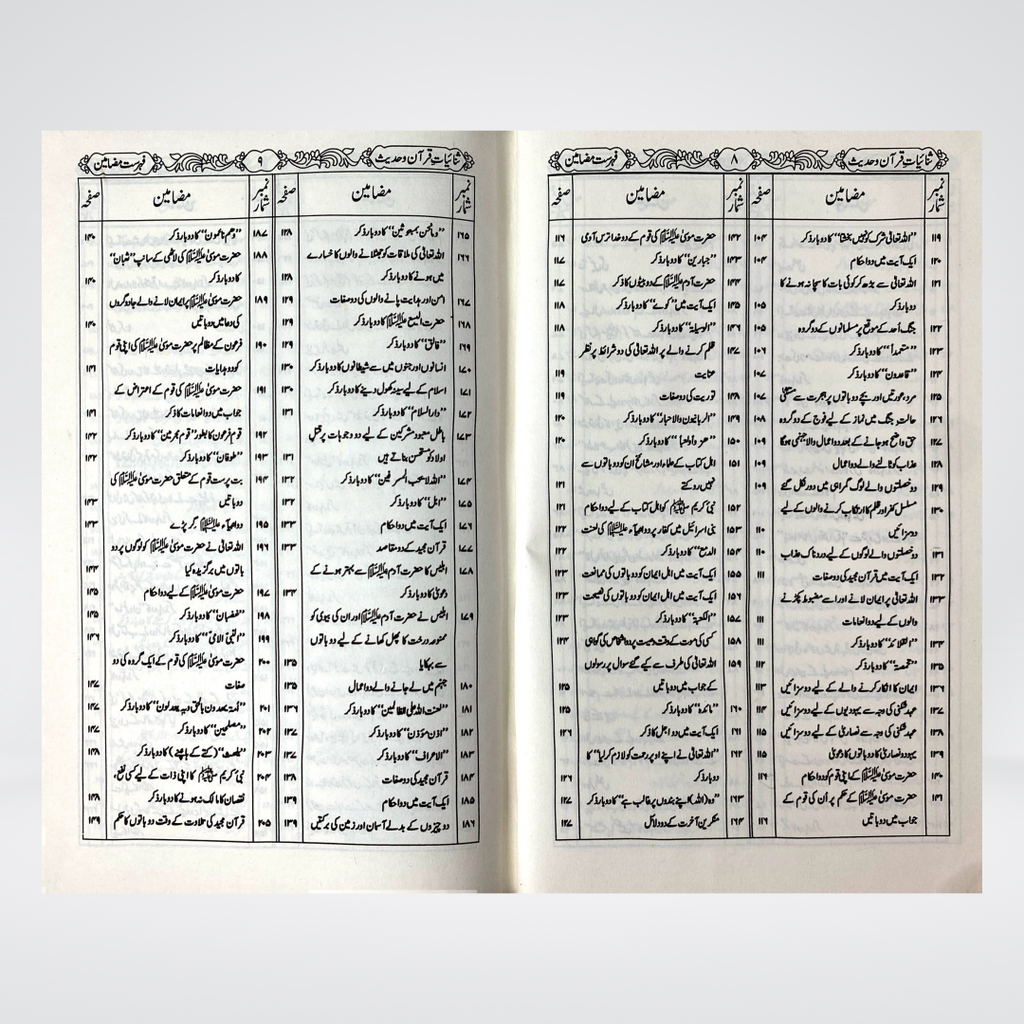 ثنائیات قرآن و حدیث
۸
فہرست مضامین
نمبر شمار
مضامین
صفحہ
نمبر شمار
مضامین
صفحہ
۱۱۹ ”اللہ تعالیٰ شرک کو نہیں بخشتا“ کا دوبار ذکر ۱۰۴
۱۲۰ ایک آیت میں دو احکام ۱۰۴
۱۲۱ اللہ تعالیٰ سے بڑھ کر کوئی بات کا سچا نہ ہونے کا
دوبار ذکر ۱۰۵
۱۲۲ جنگ احد کے موقع پر مسلمانوں کے دو گروہ ۱۰۵
۱۲۳ ”متعمداً“ کا دوبار ذکر ۱۰۶
۱۲۴ ”قاعدون“ کا دوبار ذکر ۱۰۷
۱۲۵ مرد، عورتیں اور بچے دو باتوں پر ہجرت سے مستثنیٰ ۱۰۷
۱۲۶ حالت جنگ میں نماز کے لیے فوج کے دو گروہ ۱۰۸
۱۲۷ حق واضح ہو جانے کے بعد دو اعمال والا جہنمی ہوگا ۱۰۹
۱۲۸ عذاب کو ٹالنے والے دو اعمال ۱۰۹
۱۲۹ دو خصلتوں والے لوگ گمراہی میں دور نکل گئے ۱۰۹
۱۳۰ مسلسل کفر اور ظلم کا ارتکاب کرنے والوں کے لیے
دو سزائیں ۱۱۰
۱۳۱ دو خصلتوں والے لوگوں کے لیے دردناک عذاب ۱۱۰
۱۳۲ ایک آیت میں قرآن مجید کی دو صفات ۱۱۱
۱۳۳ اللہ تعالیٰ پر ایمان لانے اور اسے مضبوط پکڑنے
والوں کے لیے دو انعامات ۱۱۱
۱۳۴ ”القلائد“ کا دوبار ذکر ۱۱۱
۱۳۵ ”مخمصۃ“ کا دوبار ذکر ۱۱۲
۱۳۶ ایمان کا انکار کرنے والے کے لیے دو سزائیں ۱۱۳
۱۳۷ عہد شکنی کی وجہ سے یہودیوں کے لیے دو سزائیں ۱۱۴
۱۳۸ عہد شکنی کی وجہ سے نصاریٰ کے لیے دو سزائیں ۱۱۵
۱۳۹ یہود و نصاریٰ کا دو باتوں کا دعویٰ ۱۱۵
۱۴۰ حضرت موسیٰ علیہ السلام کے اپنی قوم کو دو احکام ۱۱۶
۱۴۱ حضرت موسیٰ علیہ السلام کے حکم پر ان کی قوم کے
جواب میں دو باتیں ۱۱۶
۱۴۲ حضرت موسیٰ علیہ السلام کی قوم کے دو خدا ترس آدمی ۱۱۶
۱۴۳ ”جبارین“ کا دوبار ذکر ۱۱۷
۱۴۴ حضرت آدم علیہ السلام کے دو بیٹوں کا ذکر ۱۱۷
۱۴۵ ایک آیت میں ”کوے“ کا دوبار ذکر ۱۱۸
۱۴۶ ”الوسیلۃ“ کا دوبار ذکر ۱۱۸
۱۴۷ ظلم کرنے والے پر اللہ تعالیٰ کی دو شرائط پر نظر
عنایت ۱۱۹
۱۴۸ توریت کی دو صفات ۱۱۹
۱۴۹ ”الربانیون والاحبار“ کا دوبار ذکر ۱۲۰
۱۵۰ ”ھزوا ولعبا“ کا دوبار ذکر ۱۲۰
۱۵۱ اہل کتاب کے علماء اور مشائخ ان کو دو باتوں سے
نہیں روکتے ۱۲۱
۱۵۲ نبی کریم ﷺ کو اہل کتاب کے لیے دو احکام ۱۲۱
۱۵۳ بنی اسرائیل میں کفار پر دو انبیاء علیہم السلام کی لعنت ۱۲۲
۱۵۴ ”الدمع“ کا دوبار ذکر ۱۲۲
۱۵۵ ایک آیت میں اہل ایمان کو دو باتوں کی ممانعت ۱۲۳
۱۵۶ ایک آیت میں اہل ایمان کو دو باتوں کی نصیحت ۱۲۳
۱۵۷ ”الکعبۃ“ کا دوبار ذکر ۱۲۳
۱۵۸ کسی کی موت کے وقت وصیت پر دو اشخاص کی گواہی ۱۲۴
۱۵۹ اللہ تعالیٰ کی طرف سے کیے گئے سوال پر رسولوں
کے جواب میں دو باتیں ۱۲۵
۱۶۰ ”مائدہ“ کا دوبار ذکر ۱۲۵
۱۶۱ ایک آیت میں دو اجل کا ذکر ۱۲۶
۱۶۲ ”اللہ تعالیٰ نے اپنے اوپر رحمت کو لازم کر لیا“ کا
دوبار ذکر ۱۲۶
۱۶۳ ”وہ (اللہ) اپنے بندوں پر غالب ہے“ کا دوبار ذکر ۱۲۷
۱۶۴ منکرین آخرت کے دو دلائل ۱۲۷
ثنائیات قرآن و حدیث
۹
فہرست مضامین
نمبر شمار
مضامین
صفحہ
نمبر شمار
مضامین
صفحہ
۱۶۵ ”وما نحن بمبعوثین“ کا دوبار ذکر ۱۲۸
۱۶۶ اللہ تعالیٰ کی ملاقات کو جھٹلانے والوں کا خسارے
میں ہونے کا دوبار ذکر ۱۲۸
۱۶۷ امن اور ہدایت پانے والوں کی دو صفات ۱۲۹
۱۶۸ حضرت الیسع علیہ السلام کا دوبار ذکر ۱۲۹
۱۶۹ ”فالق“ کا دوبار ذکر ۱۲۹
۱۷۰ انسانوں اور جنوں میں سے شیطانوں کا دوبار ذکر ۱۳۰
۱۷۱ اسلام کے لیے سینہ کھول دینے کا دوبار ذکر ۱۳۰
۱۷۲ ”دار السلام“ کا دوبار ذکر ۱۳۱
۱۷۳ باطل معبود مشرکین کے لیے دو وجوہات پر قتلِ
اولاد کو مستحسن بناتے ہیں ۱۳۱
۱۷۴ ”انہ لا یحب المسرفین“ کا دوبار ذکر ۱۳۲
۱۷۵ ”ابل“ کا دوبار ذکر ۱۳۲
۱۷۶ ایک آیت میں دو احکام ۱۳۳
۱۷۷ قرآن مجید کے دو مقاصد ۱۳۳
۱۷۸ ابلیس کا حضرت آدم علیہ السلام سے بہتر ہونے کے
دعویٰ کا دوبار ذکر ۱۳۴
۱۷۹ ابلیس نے حضرت آدم علیہ السلام اور ان کی بیوی کو
ممنوعہ درخت کا پھل کھانے کے لیے دو باتوں
سے بہکایا ۱۳۵
۱۸۰ جہنم میں لے جانے والے دو اعمال ۱۳۵
۱۸۱ ”لعنت اللہ علی الظالمین“ کا دوبار ذکر ۱۳۶
۱۸۲ ”اذن مؤذن“ کا دوبار ذکر ۱۳۷
۱۸۳ ”الاعراف“ کا دوبار ذکر ۱۳۷
۱۸۴ قرآن مجید کی دو صفات ۱۳۸
۱۸۵ ایک آیت میں دو احکام ۱۳۹
۱۸۶ دو چیزوں کے بدلے آسمان اور زمین کی برکتیں ۱۳۹
۱۸۷ ”وھم نائمون“ کا دوبار ذکر ۱۴۰
۱۸۸ حضرت موسیٰ علیہ السلام کی لاٹھی کے سانپ ”ثعبان“
کا دوبار ذکر ۱۴۰
۱۸۹ حضرت موسیٰ علیہ السلام پر ایمان لانے والے جادوگروں
کی دعا میں دو باتیں ۱۴۰
۱۹۰ فرعون کے مظالم پر حضرت موسیٰ علیہ السلام کی اپنی قوم
کو دو ہدایات ۱۴۱
۱۹۱ حضرت موسیٰ علیہ السلام کی قوم کے اعتراض کے
جواب میں دو انعامات کا ذکر ۱۴۱
۱۹۲ قوم فرعون کا بطور ”قوم مجرمین“ کا دوبار ذکر ۱۴۲
۱۹۳ ”طوفان“ کا دوبار ذکر ۱۴۲
۱۹۴ بت پرست قوم کے متعلق حضرت موسیٰ علیہ السلام کی
دو باتیں ۱۴۳
۱۹۵ دو انبیاء علیہم السلام گر پڑے ۱۴۳
۱۹۶ اللہ تعالیٰ نے حضرت موسیٰ علیہ السلام کو لوگوں پر دو
باتوں میں برگزیدہ کیا ۱۴۴
۱۹۷ حضرت موسیٰ علیہ السلام کے لیے دو احکام ۱۴۵
۱۹۸ ”غضبان“ کا دوبار ذکر ۱۴۵
۱۹۹ ”النبی الامی“ کا دوبار ذکر ۱۴۶
۲۰۰ حضرت موسیٰ علیہ السلام کی قوم کے ایک گروہ کی دو
صفات ۱۴۷
۲۰۱ ”امۃ یھدون بالحق وبہ یعدلون“ کا دوبار ذکر ۱۴۷
۲۰۲ ”مصلحین“ کا دوبار ذکر ۱۴۷
۲۰۳ ”یلھث“ (کتے کے ہانپنے) کا دوبار ذکر ۱۴۸
۲۰۴ نبی کریم ﷺ کا اپنی ذات کے لیے کسی نفع،
نقصان کا مالک نہ ہونے کا دوبار ذکر ۱۴۸
۲۰۵ قرآن مجید کی تلاوت کے وقت دو باتوں کا حکم ۱۴۹